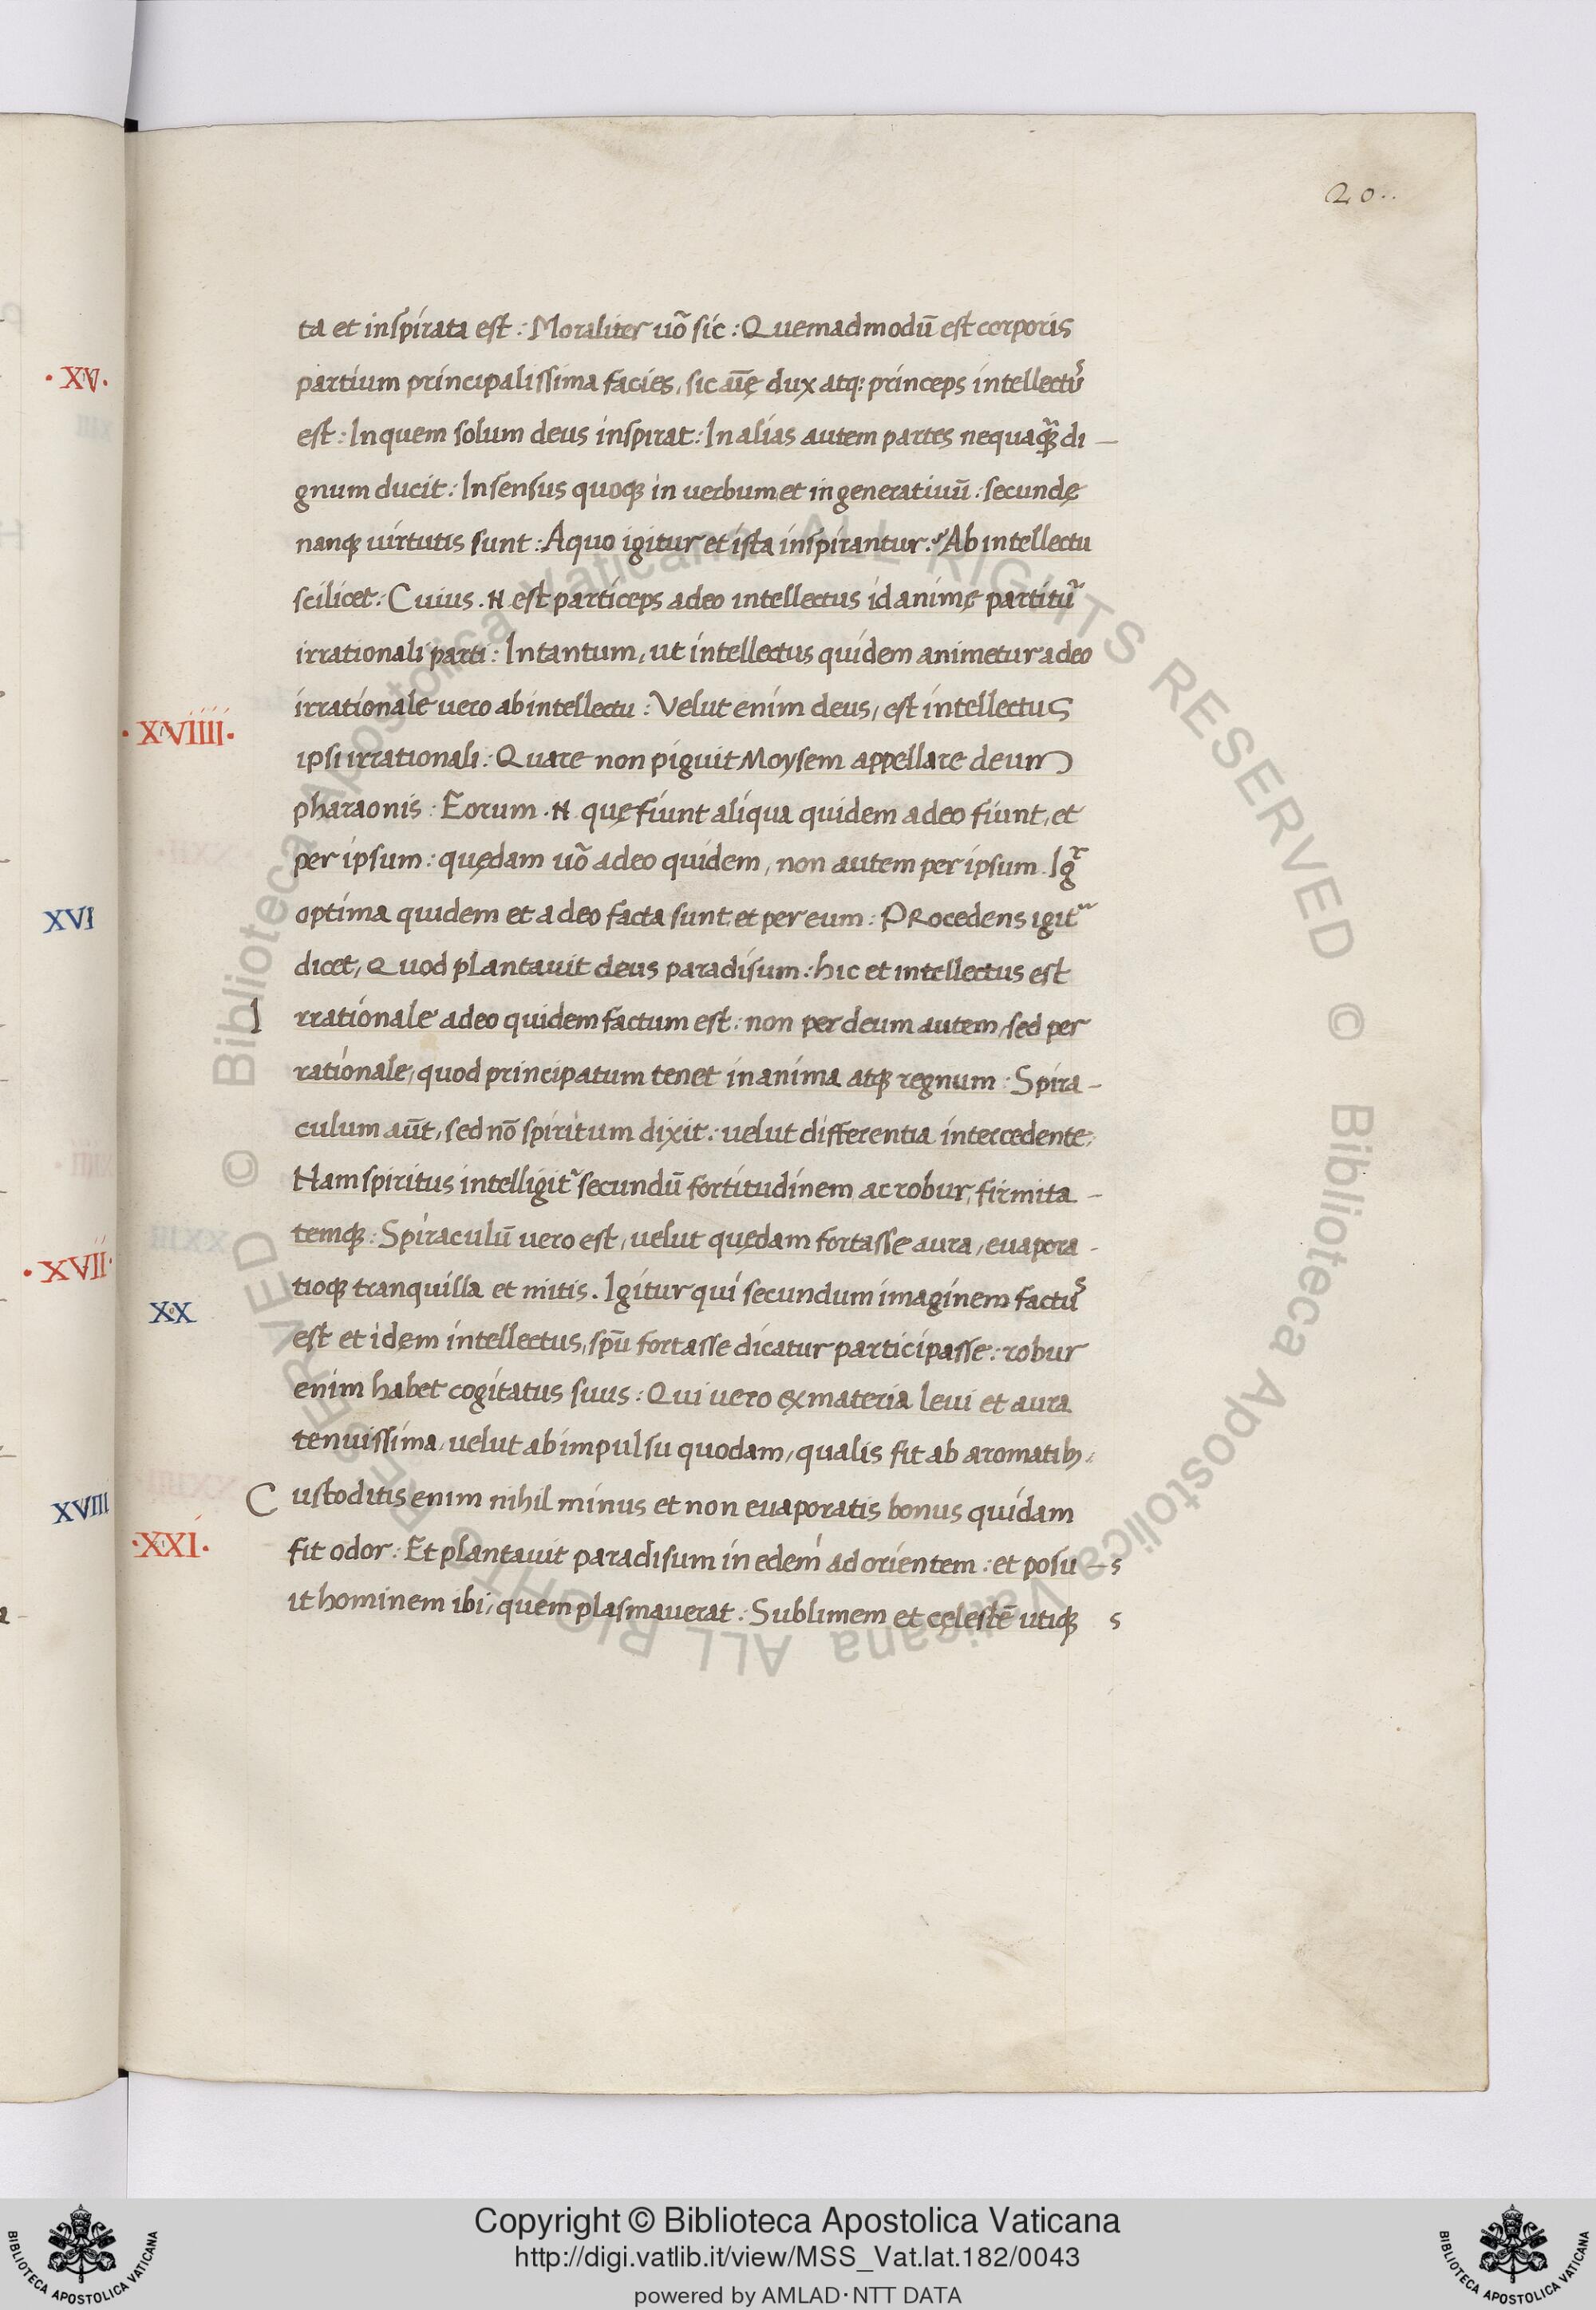 20..
ta et inspirata est: Moraliter uõ sic: Quemadmodū est corporis
partium principalissima facies, sic aīe dux atq: princeps intellectus
est: In quem solum deus inspirat: In alias autem partes nequaq̃ di-
gnum ducit: In sensus quoq; in verbum et in generatiuū: secundę
nanq; uirtutis sunt: A quo igitur et ista inspirantur? Ab intellectu
scilicet: Cuius .N. est particeps a deo intellectus id animę partitur
irrationali parti: In tantum, ut intellectus quidem animetur a deo
XVIIII
irrationale vero ab intellectu: Velut enim deus, est intellectus
ipsi irrationali: Quare non piguit Moysem appellare deum
pharaonis: Eorum .N. quę fiunt aliqua quidem a deo fiunt, et
per ipsum: quędam uõ a deo quidem, non autem per ipsum. Igr̃
optima quidem et a deo facta sunt et per eum: PRocedens igit~
dicet, Quod plantauit deus paradisum: hic et intellectus est
Irrationale a deo quidem factum est: non per deum autem, sed per
rationale, quod principatum tenet in anima atq; regnum: Spira-
culum aūt, sed nō spiritum dixit: velut differentia intercedente,
Nam spiritus intelligit~ secundū fortitudinem ac robur, firmita-
temq;: Spiraculū vero est, velut quędam fortasse aura, evapora-
tioq; tranquilla et mitis. Igitur qui secundum imaginem factus
XX
est et idęm intellectus, spū fortasse dicatur participasse: robur
enim habet cogitatus suus: Qui vero ex materia leui et aura
tenuissima, velut ab impulsu quodam, qualis fit ab aromatib;
Custoditis enim nihil minus et non evaporatis bonus quidam
XXI
fit odor: Et plantauit paradisum in edem ad orientem: et posu- s
it hominem ibi, quem plasmaverat: Sublimem et cęlestē utiq; s
XV
XVI
XVII
XVIII
Copyright © Biblioteca Apostolica Vaticana
http://digi.vatlib.it/view/MSS_Vat.lat.182/0043
powered by AMLAD·NTT DATA
BIBLIOTECA APOSTOLICA VATICANA
BIBLIOTECA APOSTOLICA VATICANA
© Biblioteca Apostolica Vaticana ALL RIGHTS RESERVED © Biblioteca Apostolica Vaticana ALL RIGHTS RESERVED